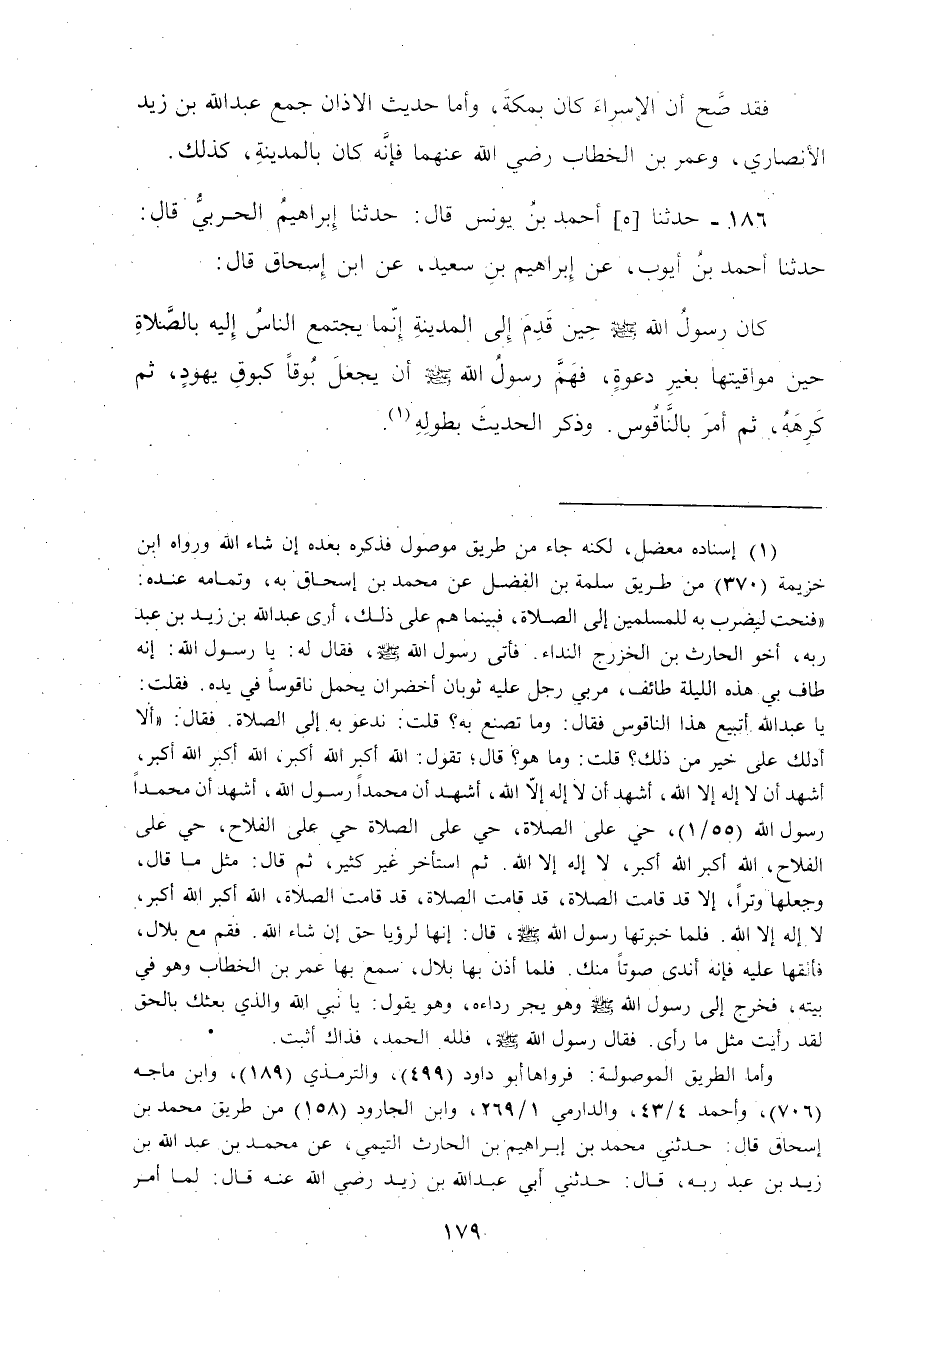 فقد صَّح أن الإسراءَ كان بمكةَ، وأما حديث الاذان جمع عبدالله بن زيد
الأنصاري، وعمر بن الخطاب رضي الله عنهما فإنَّه كان بالمدينةِ، كذلك.
١٨٦ - حدثنا [٥] أحمد بنُ يونس قال: حدثنا إبراهيمُ الحربيُّ قال:
حدثنا أحمد بنُ أيوب، عن إبراهيم بنِ سعيد، عن ابن إسحاق قال:
كان رسولُ الله ﷺ حِين قَدِمَ إلى المدينةِ إنّما يجتمع الناسُ إليه بالصَّلاةِ
حين مواقيتها بغيرِ دعوةٍ، فهَمَّ رسولُ الله ﷺ أن يجعلَ بُوقاً كبوقِ يهودٍ، ثم
كَرِهَهُ، ثم أمرَ بالنَّاقُوس. وذكر الحديثَ بطولِهِ(١).
(١) إسناده معضل، لكنه جاء من طريق موصول فذكره بعده إن شاء الله ورواه ابن
خزيمة (٣٧٠) من طريق سلمة بن الفضل عن محمد بن إسحاق به، وتمامه عنده:
«فنحت ليضرب به للمسلمين إلى الصلاة، فبينما هم على ذلك، أرى عبدالله بن زيد بن عبد
ربه، أخو الحارث بن الخزرج النداء. فأتى رسول الله ﷺ، فقال له: يا رسول الله: إنه
طاف بي هذه الليلة طائف، مربي رجل عليه ثوبان أخضران يحمل ناقوساً في يده. فقلت:
يا عبدالله أتبيع هذا الناقوس فقال: وما تصنع به؟ قلت: ندعو به إلى الصلاة. فقال: «ألا
أدلك على خير من ذلك؟ قلت: وما هو؟ قال؛ تقول: الله أكبر الله أكبر، الله أكبر الله أكبر،
أشهد أن لا إله إلا الله، أشهد أن لا إله إلاّ الله، أشهد أن محمداً رسول الله، أشهد أن محمداً
رسول الله (١/٥٥)، حي على الصلاة، حي على الصلاة حي على الفلاح، حي على
الفلاح، الله أكبر الله أكبر، لا إله إلا الله. ثم استأخر غير كثير، ثم قال: مثل ما قال،
وجعلها وتراً، إلا قد قامت الصلاة، قد قامت الصلاة، قد قامت الصلاة، الله أكبر الله أكبر،
لا إله إلا الله. فلما خبرتها رسول الله ﷺ، قال: إنها لرؤيا حق إن شاء الله. فقم مع بلال،
فألقها عليه فإنه أندى صوتاً منك. فلما أذن بها بلال، سمع بها عمر بن الخطاب وهو في
بيته، فخرج إلى رسول الله ﷺ وهو يجر رداءه، وهو يقول: يا نبي الله والذي بعثك بالحق
لقد رأيت مثل ما رأى. فقال رسول الله ﷺ، فلله الحمد، فذاك أثبت.
وأما الطريق الموصولة: فرواها أبو داود (٤٩٩)، والترمذي (١٨٩)، وابن ماجه
(٧٠٦)، وأحمد ٤٣/٤، والدارمي ٢٦٩/١، وابن الجارود (١٥٨) من طريق محمد بن
إسحاق قال: حدثني محمد بن إبراهيم بن الحارث التيمي، عن محمد بن عبد الله بن
زيد بن عبد ربه، قال: حدثني أبي عبدالله بن زيد رضي الله عنه قال: لما أمر
١٧٩